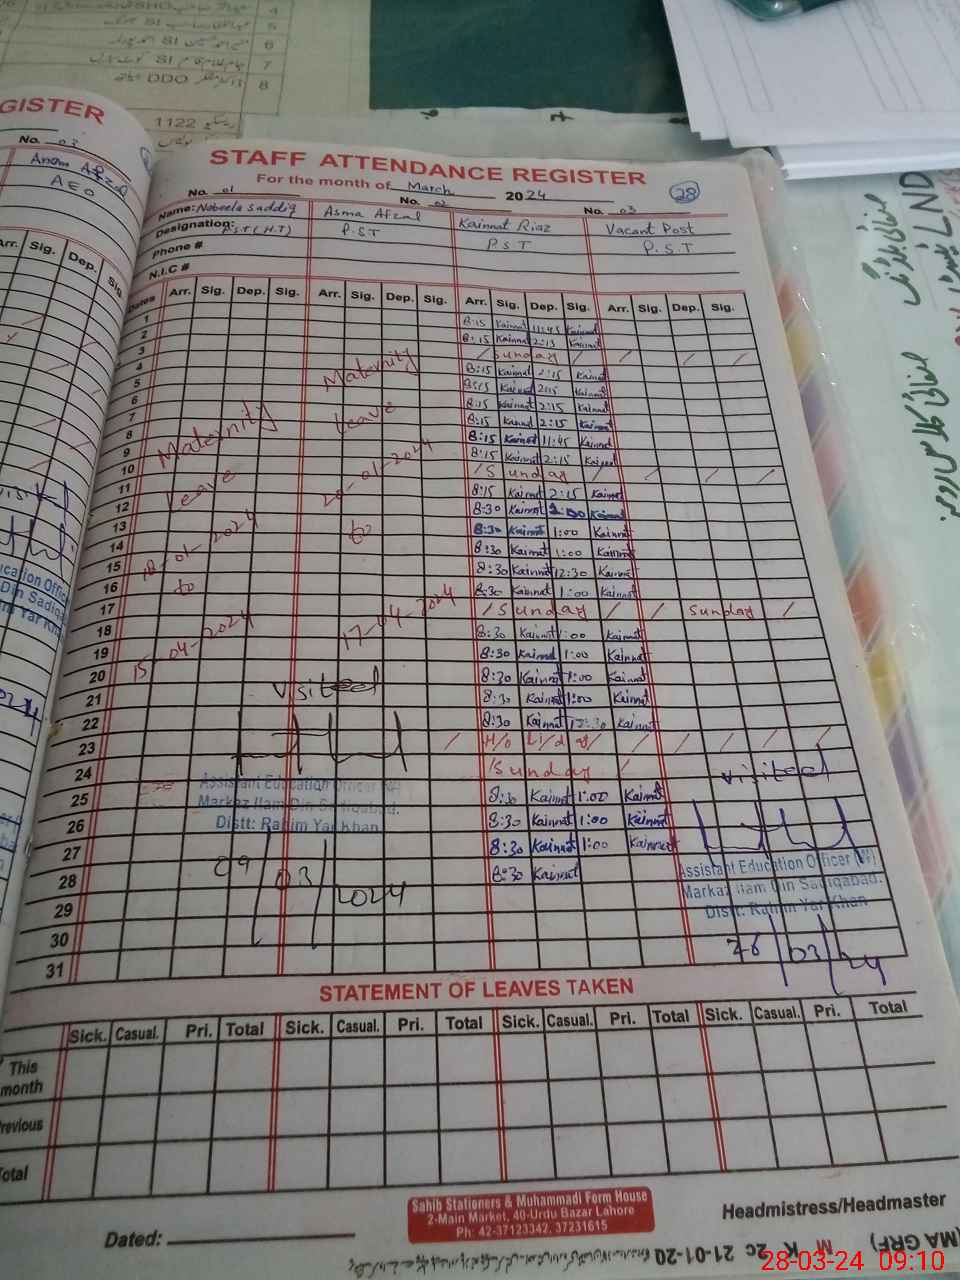 GISTER
No. 03
Anam Afzal
AEO
Arr. Sig. Dep. Sig.
4
5
6
7
8
SI
SI
DDO
1122
STAFF ATTENDANCE REGISTER
For the month of March 2024
28
No. 01 No. 02 No. 03
Name: Nabeela Saddiq Asma Afzal Kainnat Riaz Vacant Post
Designation: P.S.T (H.T) P.S.T P.S.T P.S.T
Phone #
N.I.C #
Dates Arr. Sig. Dep. Sig. Arr. Sig. Dep. Sig. Arr. Sig. Dep. Sig. Arr. Sig. Dep. Sig.
1 8:15 Kainnat 11:45 Kainnat
2 8:15 Kainnat 2:15 Kainnat
3 / Sunday / / / / /
4 8:15 Kainnat 2:15 Kainnat
5 8:15 Kainnat 2:15 Kainnat
6 8:15 Kainnat 2:15 Kainnat
7 8:15 Kainnat 2:15 Kainnat
8 8:15 Kainnat 11:45 Kainnat
9 8:15 Kainnat 2:15 Kainnat
10 / Sunday / / / / /
11 8:15 Kainnat 2:15 Kainnat
12 8:30 Kainnat Kainnat
13 8:30 Kainnat 1:00 Kainnat
14 8:30 Kainnat 1:00 Kainnat
15 8:30 Kainnat 12:30 Kainnat
16 8:30 Kainnat 1:00 Kainnat
17 / Sunday / / Sunday /
18 8:30 Kainnat 1:00 Kainnat
19 8:30 Kainnat 1:00 Kainnat
20 8:30 Kainnat 1:00 Kainnat
21 8:30 Kainnat 1:00 Kainnat
22 8:30 Kainnat 12:30 Kainnat
23 / Holiday / / / / / /
24 / Sunday /
25 8:30 Kainnat 1:00 Kainnat
26 8:30 Kainnat 1:00 Kainnat
27 8:30 Kainnat 1:00 Kainnat
28 8:30 Kainnat
29
30
31
Maternity
Leave
18-01-2024
to
15-04-2024
Maternity
Leave
20-01-2024
to
17-04-2024
visited
Assistant Education Officer (W)
Markaz Ilam Din Sadiqabad.
Distt: Rahim Yar Khan
09/03/2024
visited
Assistant Education Officer (W)
Markaz Ilam Din Sadiqabad.
Distt: Rahim Yar Khan
26/03/24
STATEMENT OF LEAVES TAKEN
Sick. Casual. Pri. Total Sick. Casual. Pri. Total Sick. Casual. Pri. Total Sick. Casual. Pri. Total
This
month
revious
otal
Dated:
Sahib Stationers & Muhammadi Form House
2-Main Market, 40-Urdu Bazar Lahore
Ph: 42-37123342, 37231615
Headmistress/Headmaster
(MA GRF) M K 2c 21-01-20
28-03-24 09:10